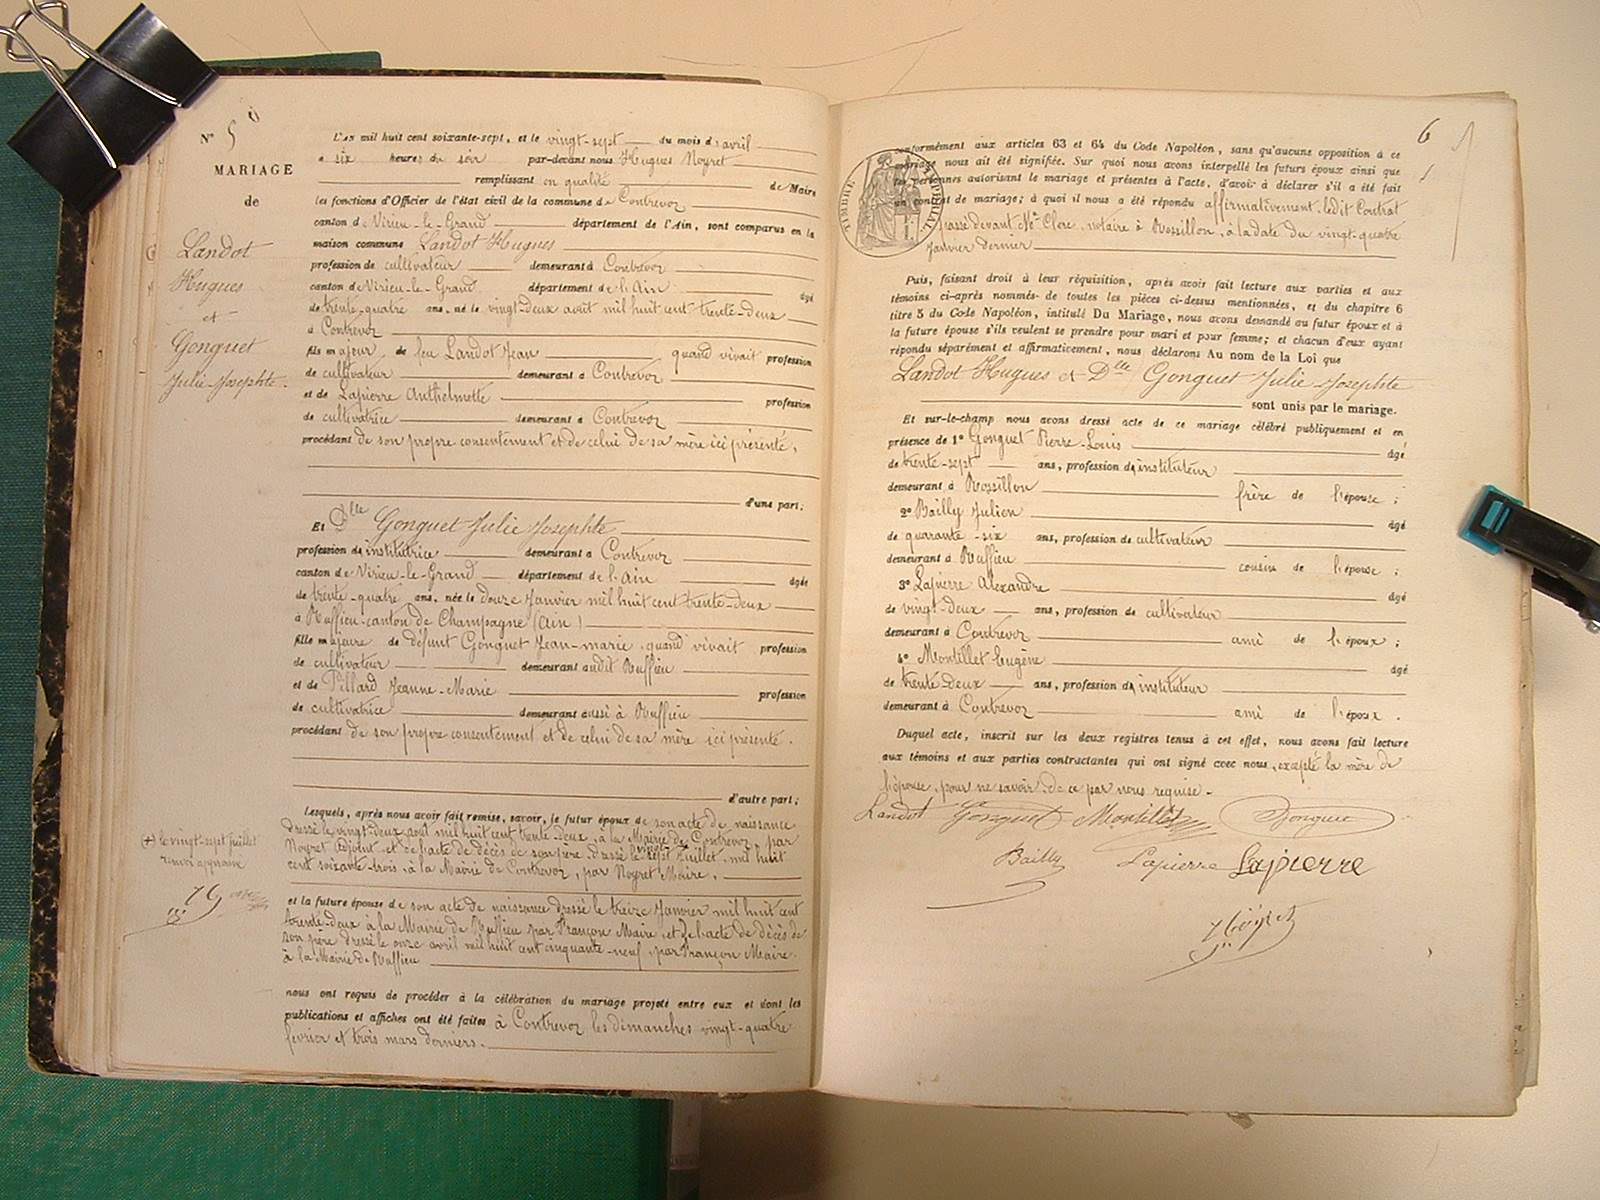 N° 5
MARIAGE
de
Landot
Hugues
et
Gonguet
Julie-Josephte.
L'an mil huit cent soixante-sept, et le vingt-sept du mois d'avril
a six heures du soir par-devant nous Hugues Noyret
remplissant en qualité de Maire
les fonctions d'Officier de l'état civil de la commune de Contrevoz
canton de Virieu-le-Grand département de l'Ain, sont comparus en la
maison commune Landot Hugues
profession de cultivateur demeurant à Contrevoz
canton de Virieu-le-Grand département de l'Ain âgé
de trente-quatre ans, né le vingt-deux août mil huit cent trente-deux
à Contrevoz
fils majeur de feu Landot Jean quand vivait profession
de cultivateur demeurant à Contrevoz
et de Lapierre Anthelmette profession
de cultivatrice demeurant à Contrevoz
procédant de son propre consentement et de celui de sa mère ici présente,
d'une part;
Et Dlle Gonguet Julie Josephte
profession de institutrice demeurant à Contrevoz
canton de Virieu-le-Grand département de l'Ain âgée
de trente-quatre ans, née le douze Janvier mil huit cent trente-deux
à Ruffieu canton de Champagne (Ain)
fille majeure de défunt Gonguet Jean-marie, quand vivait profession
de cultivateur demeurant audit Ruffieu
et de Pillard Jeanne-Marie profession
de cultivatrice demeurant aussi à Ruffieu
procédant de son propre consentement et de celui de sa mère ici présente.
d'autre part;
Lesquels, après nous avoir fait remise, savoir, le futur époux de son acte de naissance
dressé le vingt-deux août mil huit cent trente-deux, à la Mairie de Contrevoz, par
Noyret Adjoint, et de l'acte de décès de son père dressé le vingt sept Juillet, mil huit
cent soixante-trois, à la Mairie de Contrevoz, par Noyret Maire.
(+) le vingt-sept juillet
renvoi approuvé
et la future épouse de son acte de naissance dressé le treize Janvier mil huit cent
trente-deux à la Mairie de Ruffieu par Françon Maire, et de l'acte de décès de
son père dressé le onze avril mil huit cent cinquante-neuf, par Françon Maire.
à la Mairie de Ruffieu
nous ont requis de procéder à la célébration du mariage projeté entre eux et dont les
publications et affiches ont été faites à Contrevoz les dimanches vingt-quatre
février et trois mars derniers.
6
TIMBRE IMPERIAL
conformément aux articles 63 et 64 du Code Napoléon, sans qu'aucune opposition à ce
mariage nous ait été signifiée. Sur quoi nous avons interpellé les futurs époux ainsi que
les personnes autorisant le mariage et présentes à l'acte, d'avoir à déclarer s'il a été fait
un contrat de mariage; à quoi il nous a été répondu affirmativement. ledit Contrat
passé devant Me Clerc, notaire à Rossillon, à la date du vingt-quatre
janvier dernier
Puis, faisant droit à leur réquisition, après avoir fait lecture aux parties et aux
témoins ci-après nommés de toutes les pièces ci-dessus mentionnées, et du chapitre 6
titre 5 du Code Napoléon, intitulé Du Mariage, nous avons demandé au futur époux et à
la future épouse s'ils veulent se prendre pour mari et pour femme; et chacun d'eux ayant
répondu séparément et affirmativement, nous déclarons Au nom de la Loi que
Landot Hugues et Dlle Gonguet Julie-Josephte
sont unis par le mariage.
Et sur-le-champ nous avons dressé acte de ce mariage célébré publiquement et en
présence de 1° Gonguet Pierre-Louis âgé
de trente-sept ans, profession de instituteur
demeurant à Rossillon frère de l'épouse;
2° Bailly Julien âgé
de quarante-six ans, profession de cultivateur
demeurant à Ruffieu cousin de l'épouse;
3° Lapierre Alexandre âgé
de vingt-deux ans, profession de cultivateur
demeurant à Contrevoz ami de l'époux;
4° Montillet Eugène âgé
de trente-deux ans, profession de instituteur
demeurant à Contrevoz ami de l'époux.
Duquel acte, inscrit sur les deux registres tenus à cet effet, nous avons fait lecture
aux témoins et aux parties contractantes qui ont signé avec nous, excepté la mère de
l'épouse, pour ne savoir, de ce par nous requise.
Landot Gonguet Montillet Gonguet
Bailly Lapierre Lapierre
Noyret